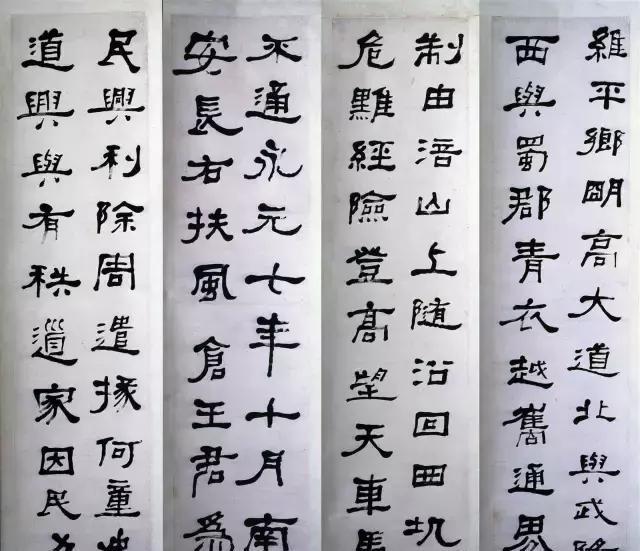 維平鄉明高大道北與武
西與蜀郡青衣越巂通界
制由涪山上隨沿回田
危難經險登高望天車馬
不通永元七年十月南
安長右扶風倉王君為
民興利除周遣掾何童
道興與有秩遒家因民